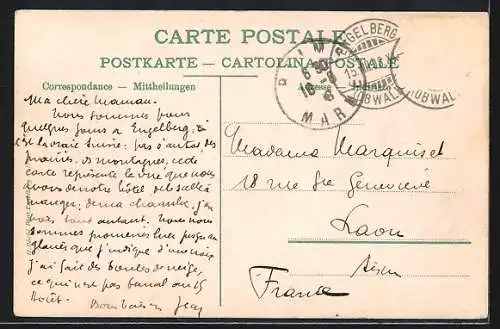 CARTE POSTALE
POSTKARTE - CARTOLINA POSTALE
Correspondance - Mittheilungen
Ma chère Maman.
Nous sommes pour
quelques jours à Engelberg:
la vraie Suisse: pas d'autos des
prairies, des montagnes, cette
carte représente la vue que nous
avons de notre hôtel de la salle à
manger; de ma chambre, j'en
vois tout autant. Nous nous
sommes promenés hier jusqu'au
glacier que j'indique d'une croix
j'ai fait des boules de neige,
ce qui n'est pas banal au 15
Août. Bons baisers Jean
ENGELBERG
(OBWALD)
OBWAL
MAR
Madame Marquiset
18 rue Ste Geneviève
Laon
Aisne
France